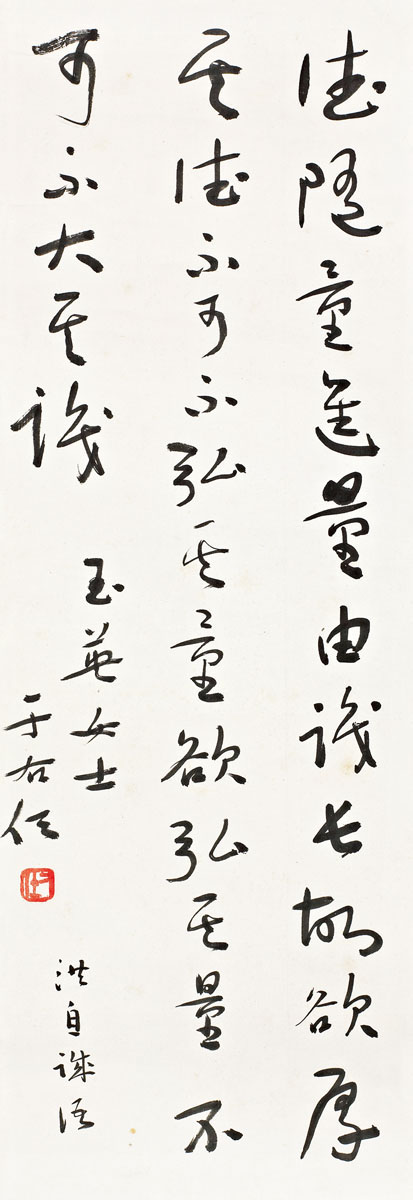 德隨量進量由識長故欲厚
其德不可不弘其量欲弘其量不
可不大其識
玉英女士
于右任
洪自誠語